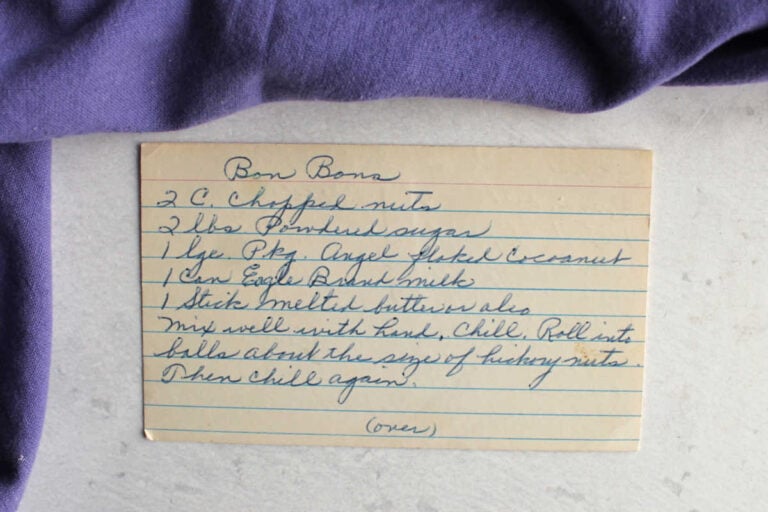 Bon Bons
2 C. Chopped nuts
2 lbs Powdered sugar
1 lge. Pkg. Angel flaked Cocoanut
1 Can Eagle Brand milk
1 Stick melted butter or oleo
Mix well with hand, Chill. Roll into
balls about the size of hickory nuts.
Then chill again.
(over)